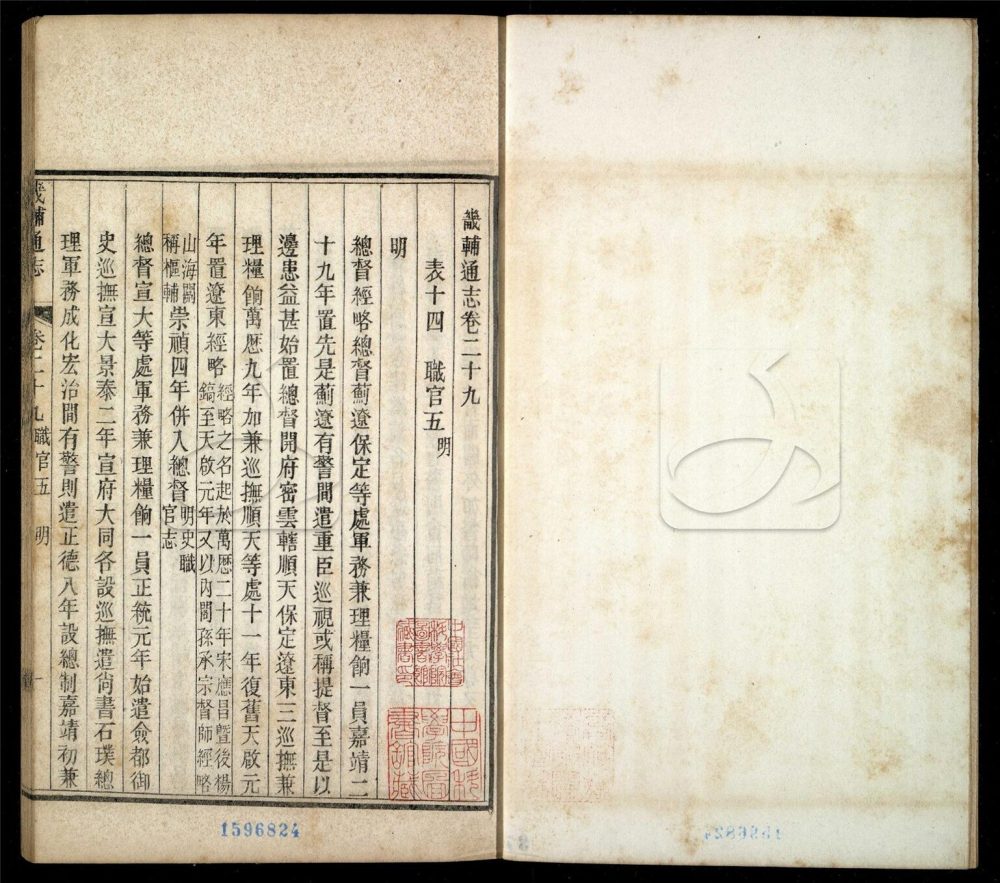 畿輔通志卷二十九
表十四　職官五　明
明
總督經略總督薊遼保定等處軍務兼理糧餉一員嘉靖二
十九年置先是薊遼有警間遣重臣巡視或稱提督至是以
邊患益甚始置總督開府密雲轄順天保定遼東三巡撫兼
理糧餉萬歷九年加兼巡撫順天等處十一年復舊天啟元
年置遼東經略經略之名起於萬歷二十年宋應昌暨後楊
鎬至天啟元年又以內閣孫承宗督師經略
山海關
稱樞輔崇禎四年併入總督明史職
官志
總督宣大等處軍務兼理糧餉一員正統元年始遣僉都御
史巡撫宣大景泰二年宣府大同各設巡撫遣尚書石璞總
理軍務成化宏治間有警則遣正德八年設總制嘉靖初兼
畿輔通志　卷二十九職官五　明　一
中國社會
科學院
圖書館
藏書印
中國科
學院圖
書館藏
1596824